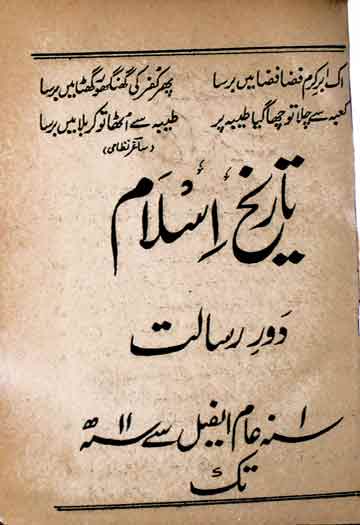 اک ابرِ کرم فضا فضا میں برسا پھر کفر کی گھنگھور گھٹا میں برسا
کعبہ سے چلا تو چھا گیا طیبہ پر طیبہ سے اٹھا تو کربلا میں برسا
(ساغر نظامی)
تاریخِ اِسْلام
دَورِ رسالت
۱ سنہ عام الفیل سے ۱۱ سنہ ھ
تک